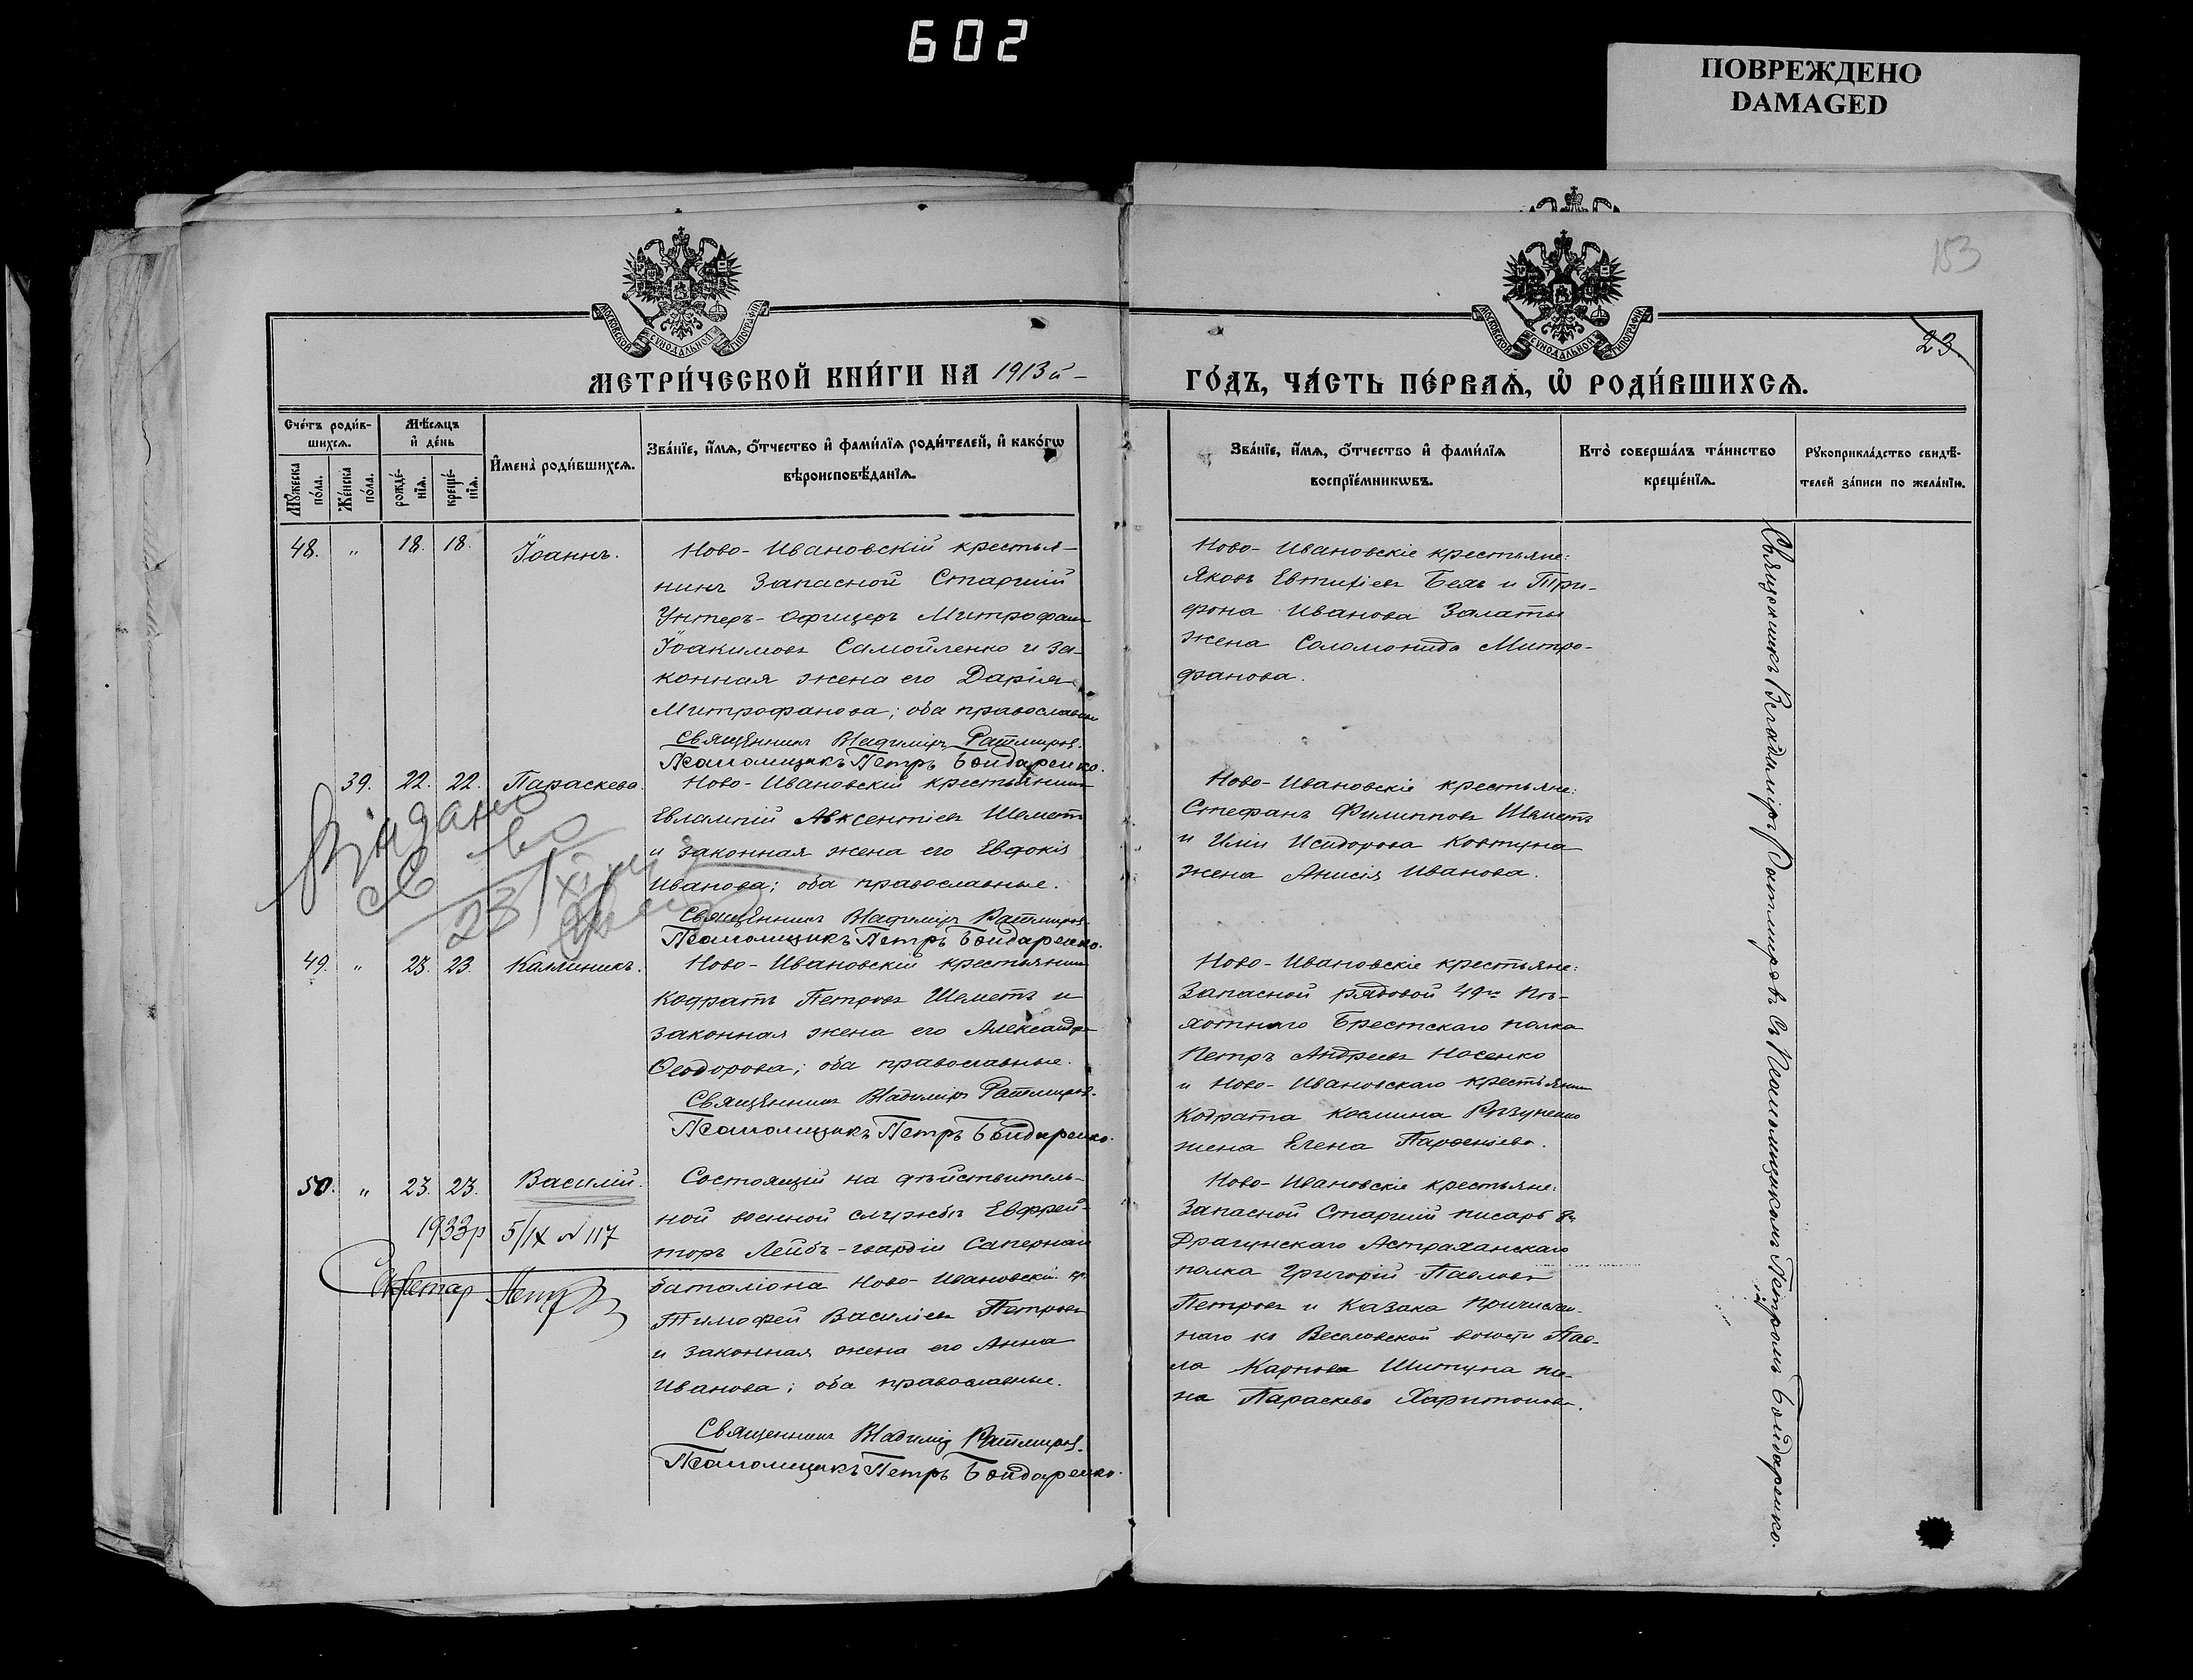 602
ПОВРЕЖДЕНО
DAMAGED
153
МОСКОВСКОЙ СѴНОДАЛЬНОЙ ТИПОГРАФІИ
МОСКОВСКОЙ СѴНОДАЛЬНОЙ ТИПОГРАФІИ
23
МЕТРИ́ЧЕСКОЙ КНИ́ГИ НА 1913й
ГО́ДЪ, ЧА́СТЬ ПЕ́РВАѦ, Ѡ҆ РОДИ́ВШИХСѦ.
Сче́тъ роди́вшихсѧ.
Мѣ́сѧцъ и҆ де́нь
Мꙋ́жеска по́ла.
Же́нска по́ла.
рожде́нїѧ.
креще́нїѧ.
И҆мена̀ роди́вшихсѧ.
Зва́нїе, и҆́мѧ, ѻ҆́тчество и҆ фами́лїѧ роди́телей, и҆ како́гѡ
вѣроисповѣ́данїѧ.
Зва́нїе, и҆́мѧ, ѻ҆́тчество и҆ фами́лїѧ
воспрїе́мникѡвъ.
Кто̀ соверша́лъ та́инство
креще́нїѧ.
Рꙋкоприкла́дство свидѣ́-
телей за́писи по жела́нїю.
48. " 18. 18. Іоаннъ.
Ново-Ивановскій крестья-
нинъ Запасной Старшій
Унтеръ-Офицеръ Митрофанъ
Іоакимовъ Самойленко и за-
конная жена его Дарія
Митрофанова; оба православные
Священникъ Владиміръ Ратмировъ.
Псаломщикъ Петръ Бондаренко.
Ново-Ивановскіе крестьяне:
Яковъ Евтихіевъ Бель и Три-
фона Иванова Залаты
жена Соломонида Митро-
фанова.
39. 22. 22. Параскева
Ново-Ивановскій крестьянинъ
Евлампій Авксентіевъ Шеметъ
и законная жена его Евдокія
Иванова; оба православные.
Священникъ Владиміръ Ратмировъ.
Псаломщикъ Петръ Бондаренко.
Ново-Ивановскіе крестьяне:
Стефанъ Филипповъ Шеметъ
и Иліи Исидорова Ковтуна
жена Анисія Иванова.
Видано
св-во
23/XI
49. " 23. 23. Каллиникъ.
Ново-Ивановскій крестьянинъ
Кодратъ Петровъ Шеметъ и
законная жена его Александра
Ѳеодорова; оба православные.
Священникъ Владиміръ Ратмировъ.
Псаломщикъ Петръ Бондаренко.
Ново-Ивановскіе крестьяне:
Запасной рядовой 49го Пѣ-
хотного Брестскаго полка
Петръ Андреевъ Носенко
и Ново-Ивановскаго крестьянина
Кодрата Космина
жена Елена Парѳеніева.
50. " 23. 23. Василій.
Состоящій на дѣйствитель-
ной военной службѣ Ефрей-
торъ Лейбъ-гвардіи Сапернаго
баталіона Ново-Ивановскій кр.
Тимофей Василіевъ Петровъ
и законная жена его Анна
Иванова; оба православные.
Священникъ Владиміръ Ратмировъ.
Псаломщикъ Петръ Бондаренко.
1933р 5/IX № 117
Секретар
Ново-Ивановскіе крестьяне:
Запасной Старшій писарь 8го
Драгунскаго Астраханскаго
полка Григорій Павловъ
Петровъ и Казака причислен-
наго къ Веселовской волости Пав-
ла Карпова Шитуна же-
на Параскева Харитонова.
Священникъ Владиміръ Ратмировъ съ Псаломщикомъ Петромъ Бондаренко.